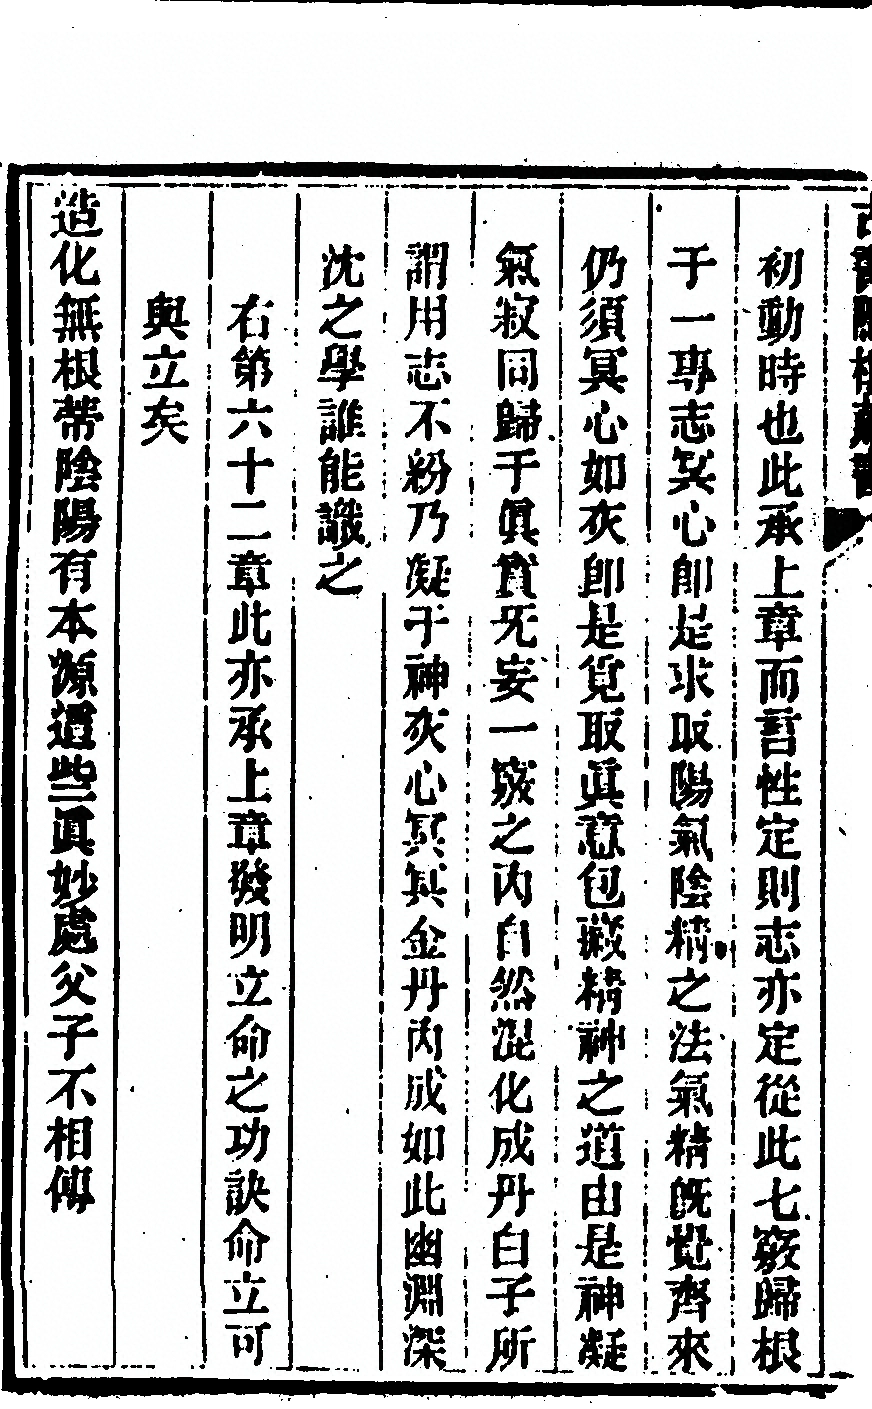 初動時也此承上章而言性定則志亦定從此七竅歸根
于一專志冥心卽是求取陽氣陰精之法氣精旣覺齊來
仍須冥心如灰卽是覓取眞意包藏精神之道由是神凝
氣寂同歸于眞實无妄一竅之內自然混化成丹白子所
謂用志不紛乃凝于神灰心冥冥金丹內成如此幽淵深
沈之學誰能識之
右第六十二章此亦承上章發明立命之功訣命立可
與立矣
造化無根蒂陰陽有本源這些眞妙處父子不相傳